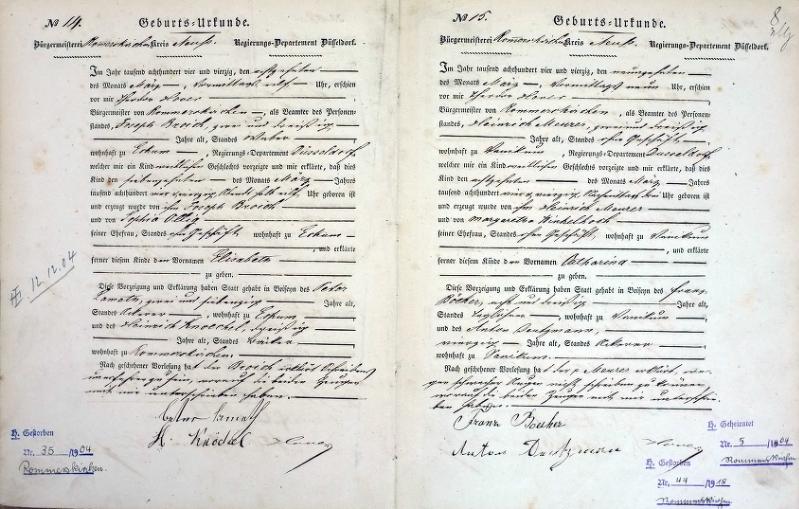 № 14.
Geburts-Urkunde.
Bürgermeisterei Rommerskirchen Kreis Neuss. Regierungs-Departement Düsseldorf.
Im Jahr tausend achthundert vier und vierzig, den achtzehnten
des Monats März, Vormittags elf Uhr, erschien
vor mir Theodor
Bürgermeister von Rommerskirchen, als Beamter des Personen-
standes, Joseph Broich, zwei und dreißig
Jahre alt, Standes
wohnhaft zu Eckum, Regierungs-Departement Düsseldorf,
welcher mir ein Kind weiblichen Geschlechts vorzeigte und mir erklärte, daß dies
Kind den siebenzehnten des Monats März Jahrs
tausend achthundert vier und vierzig Abends halb elf Uhr geboren ist
und erzeugt wurde von ihm Joseph Broich
und von Sophia Ollig
seiner Ehefrau, Standes ohne Geschäft, wohnhaft zu Eckum
, und erklärte
ferner diesem Kinde den Vornamen Elisabeth
zu geben.
Diese Vorzeigung und Erklärung haben Statt gehabt in Beiseyn des Peter
Lamotte, zwei und siebenzig Jahre alt,
Standes Ackerer, wohnhaft zu Eckum,
und des Heinrich Knoechel, dreißig
Jahre alt, Standes
wohnhaft zu Rommerskirchen.
Nach geschehener Vorlesung hat der Broich erklärt Schreibens
unerfahren zu sein, worauf die beiden Zeugen
mit mir unterschrieben haben.
Peter Lamotte
H. Knöchel
12.12.04
H. Gestorben
Nr. 35 /1904
Rommerskirchen.
№ 15.
8
Geburts-Urkunde.
Bürgermeisterei Rommerskirchen Kreis Neuss. Regierungs-Departement Düsseldorf.
Im Jahr tausend achthundert vier und vierzig, den neunzehnten
des Monats März, Vormittags neun Uhr, erschien
vor mir Theodor
Bürgermeister von Rommerskirchen, als Beamter des Personen-
standes, Heinrich Meurer, zwei und dreißig
Jahre alt, Standes ohne Geschäft,
wohnhaft zu Vanikum, Regierungs-Departement Düsseldorf,
welcher mir ein Kind weiblichen Geschlechts vorzeigte und mir erklärte, daß dies
Kind den achtzehnten des Monats März Jahrs
tausend achthundert vier und vierzig Nachmittags drei Uhr geboren ist
und erzeugt wurde von ihm Heinrich Meurer
und von Margaretha Winkelhoch
seiner Ehefrau, Standes ohne Geschäft, wohnhaft zu Vanikum
, und erklärte
ferner diesem Kinde den Vornamen Catharina
zu geben.
Diese Vorzeigung und Erklärung haben Statt gehabt in Beiseyn des Franz
Böcker, acht und dreißig Jahre alt,
Standes Taglöhner, wohnhaft zu Vanikum
und des Anton Deutzmann,
vierzig Jahre alt, Standes Ackerer
wohnhaft zu Vanikum.
Nach geschehener Vorlesung hat der p Meurer erklärt, we-
gen schwacher Augen nicht schreiben zu können,
worauf die beiden Zeugen mit mir unterschrie-
ben haben.
Franz Boecker
Anton Deutzmann
H. Geheiratet
Nr. 5 /1904
Rommerskirchen
H. Gestorben
Nr. 44 /1918
Rommerskirchen